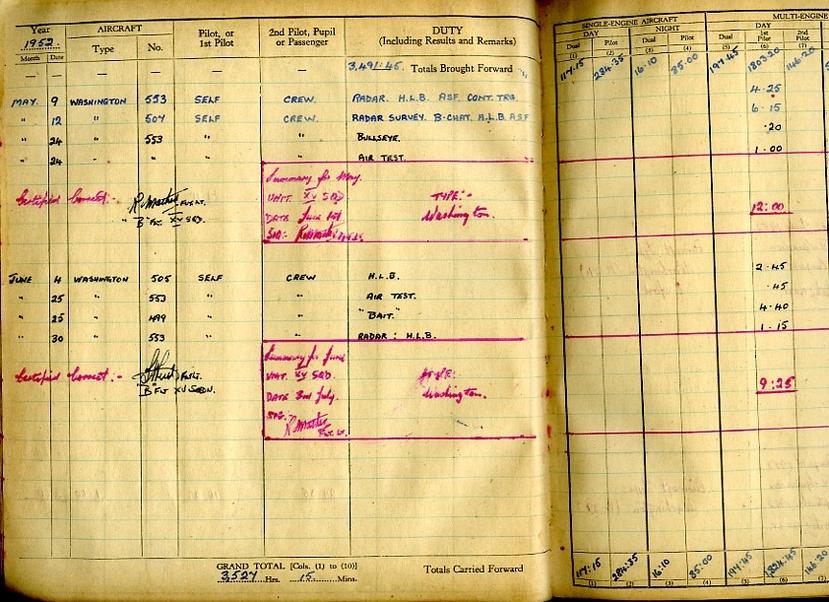 Year AIRCRAFT Pilot, or 2nd Pilot, Pupil DUTY
1952. Type No. 1st Pilot or Passenger (Including Results and Remarks)
Month Date
— — — — — — 3,491·45. Totals Brought Forward
MAY. 9 WASHINGTON 553 SELF CREW. RADAR. H.L.B. ASF. CONT. TRG.
" 12 " 507 SELF CREW. RADAR SURVEY. B-CHAT. H.L.B. ASF
" 24 " 553 " " BULLSEYE.
" 24 " " " " AIR TEST.
Summary for May.
Certified Correct:- FLT.LT. UNIT. XV SQD TYPE:-
"B" FLT. XV SQD. DATE June 1st Washington.
SIG:-
JUNE 4 WASHINGTON 505 SELF CREW H.L.B.
" 25 " 553 " " AIR TEST.
" 25 " 499 " " "BAIT."
" 30 " 553 " " RADAR: H.L.B.
Summary for June
Certified Correct:- FLT.LT. UNIT. XV SQD. TYPE:
"B" FLT XV SQDN. DATE 3rd July. Washington.
SIG.
GRAND TOTAL [Cols. (1) to (10)] Totals Carried Forward
3,527 Hrs. 15 Mins.
SINGLE-ENGINE AIRCRAFT MULTI-ENGINE
DAY NIGHT DAY
Dual Pilot Dual Pilot Dual 1st Pilot 2nd Pilot
(1) (2) (3) (4) (5) (6) (7)
117·15 284·35 16·10 85·00 197·45 1803·20 146·20
4·25
6·15
·20
1·00
12:00
2·45
·45
4·40
1·15
9:25
117·15 284·35 16·10 85·00 197·45 1824·45 146·20
(1) (2) (3) (4) (5) (6) (7)